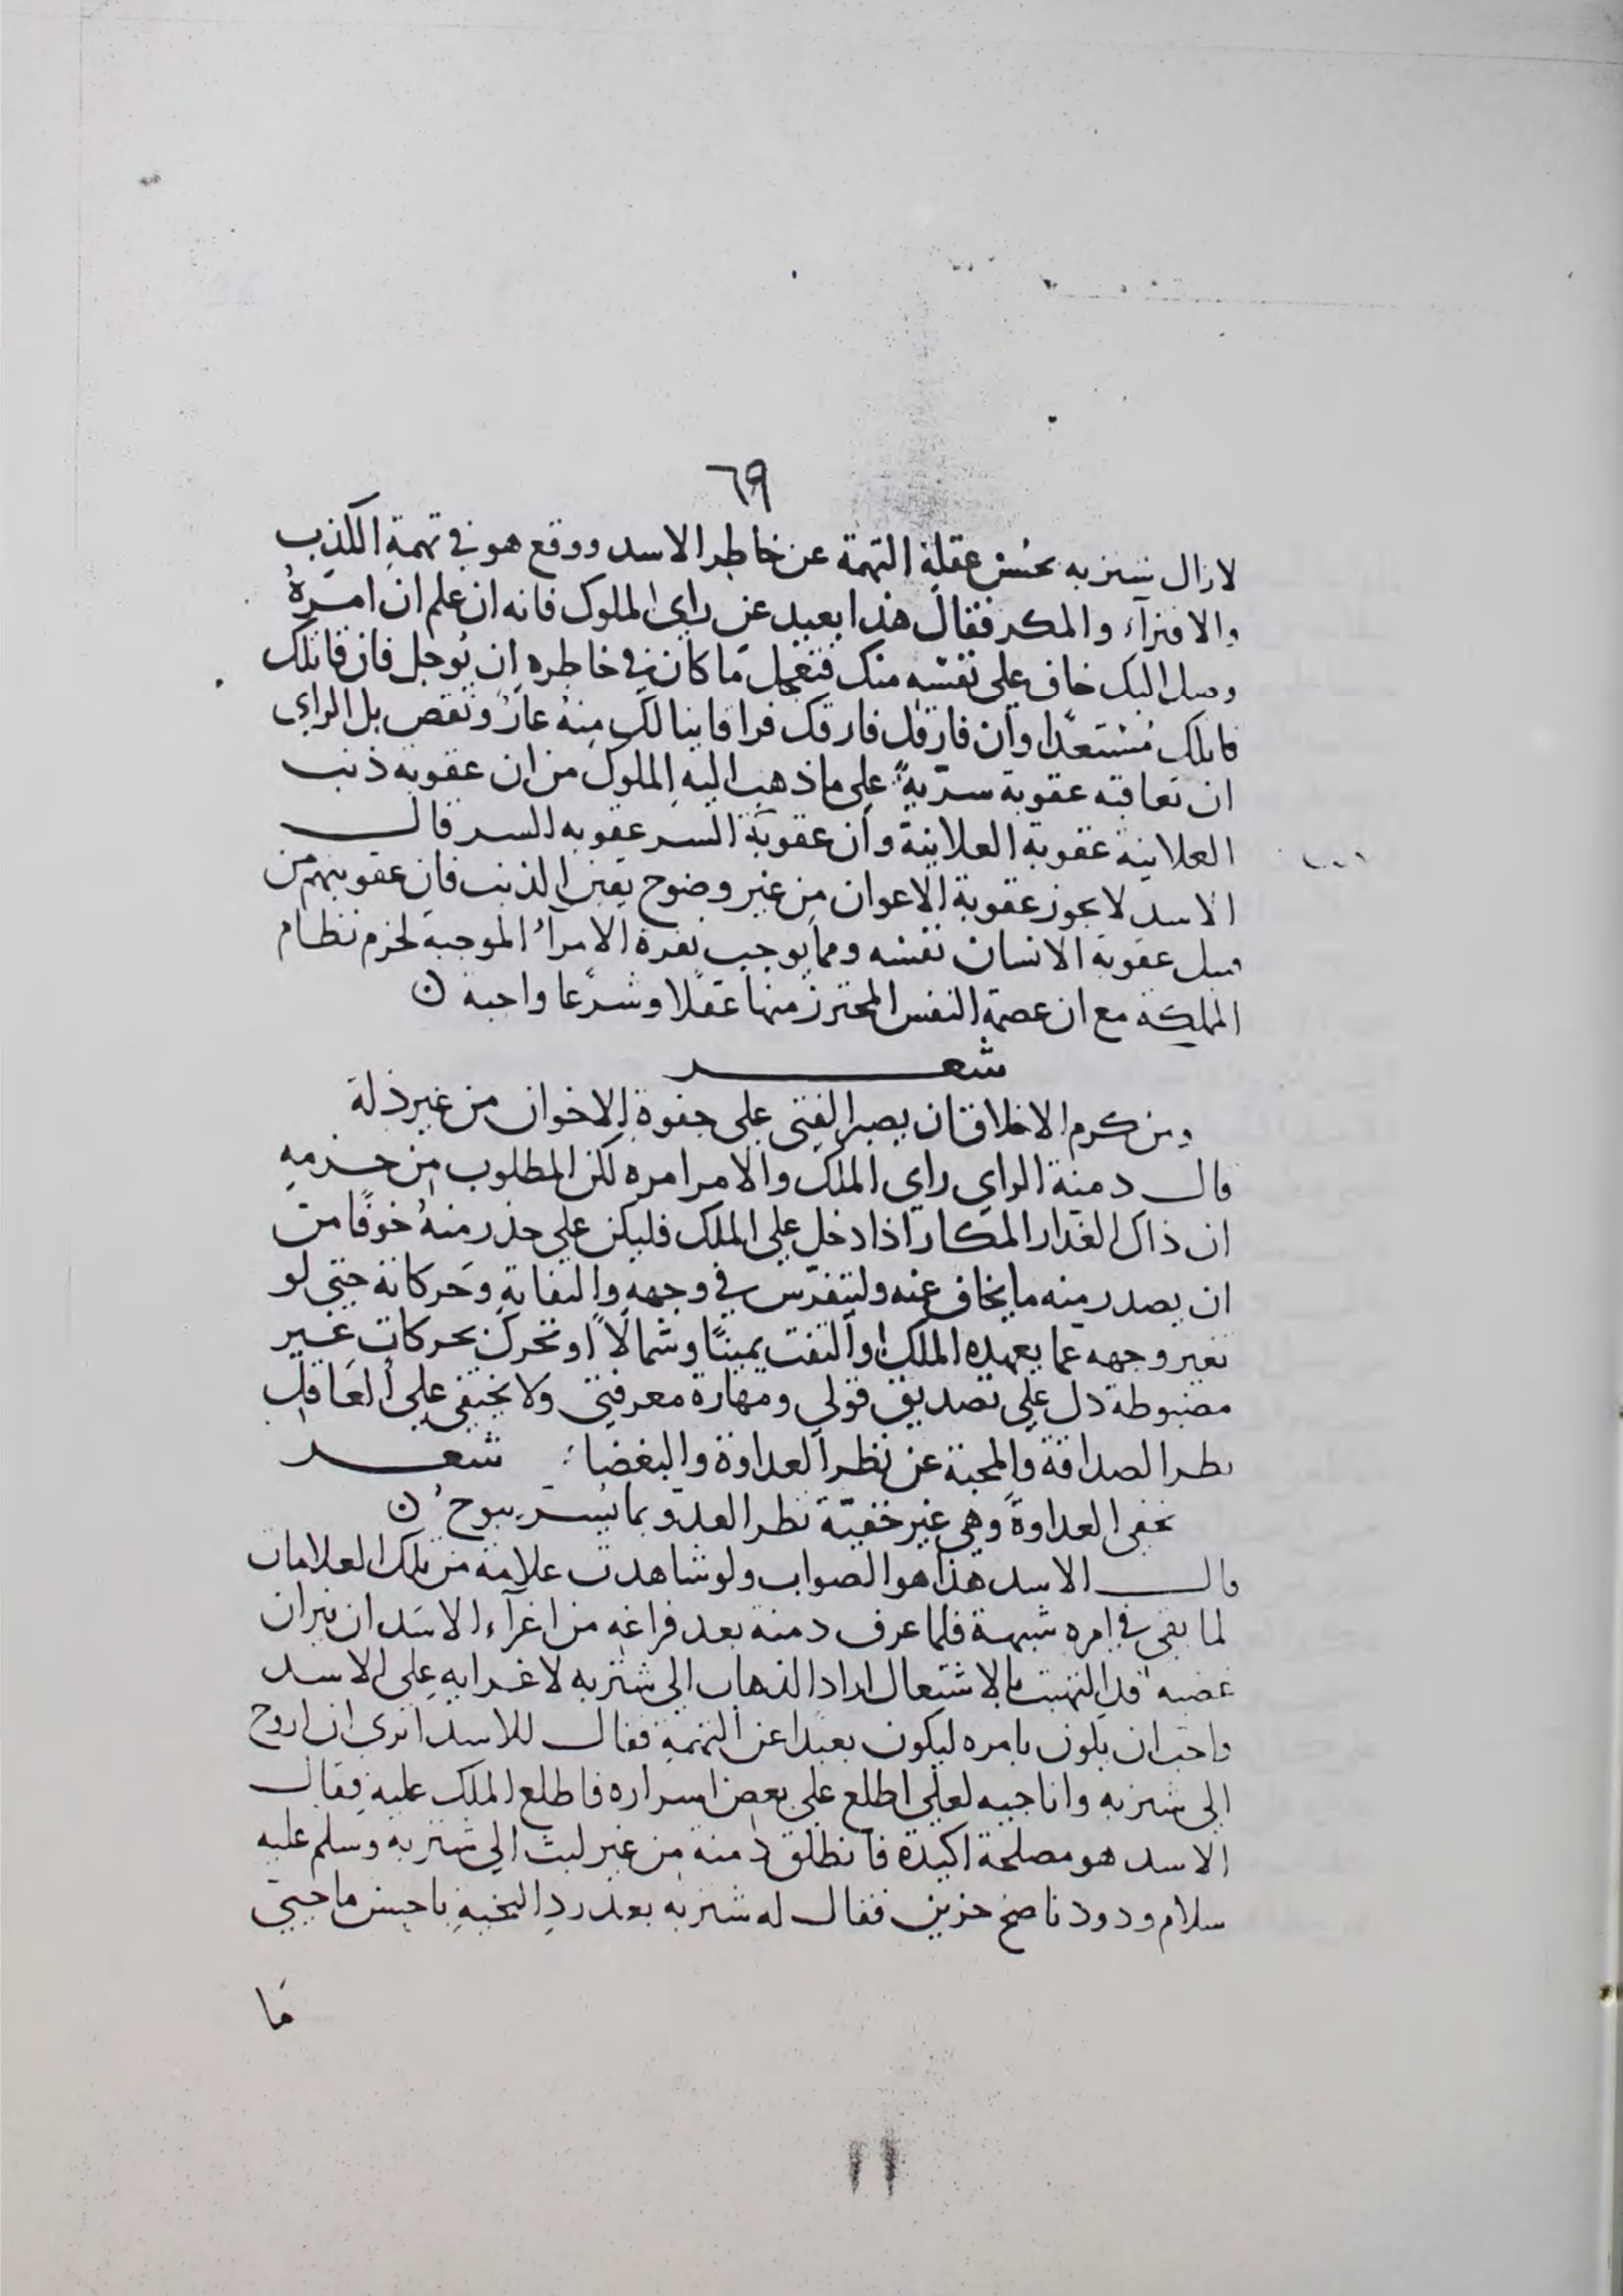 ٦٩
لازال شنزبه بحُسن عقله التهمة عن خاطر الاسد ووقع هو في تهمة الكذب
والافترآء والمكر فقال هذا بعيد عن راي الملوك فانه ان علم ان امره
وصل اليك خاف على نفسه منك فتعجل ما كان في خاطره ان نوجل فان قاتلك
قاتلك مستعدا وان فارقك فارقك فراقا ينالك منه عار ونقص بل الراي
ان تعاقبه عقوبة سرّيةً على ما ذهب اليه الملوك من ان عقوبة ذنب
العلانية عقوبة العلانية وان عقوبة السر عقوبه السر قال
الاسد لا يجوز عقوبة الاعوان من غير وضوح يقين الذنب فان عقوبتهم من
قبيل عقوبة الانسان نفسه ومما يوجب نفرة الامراء الموجبه لخرم نظام
المملكة مع ان عصمة النفس المحترز منها عقلا وشرعا واجبة ن
شعر
ومن كرم الاخلاق ان يصبر الفتى على جفوة الاخوان من غير ذلة
قال دمنة الراي راي الملك والامر امره لكن المطلوب من حزمه
ان ذاك الغدار المكار اذا دخل على الملك فليكن على حذر منهُ خوفًا من
ان يصدر منه ما يخاف عنه وليتفرّس في وجهه والتفاته وحركاته حتى لو
تغير وجهه عما يعهده الملك او التفت يمينًا وشمالًا او تحرك بحركات غير
مضبوطة دل على تصديق قولي ومهارة معرفتي ولا يختفي على العاقل
نظر الصداقة والمحبة عن نظر العداوة والبغضا: شعر
تخفى العداوةَ وهي غير خفيّة نظر العدو بما يُسرّ يبوحُ ن
قال الاسد هذا هو الصواب ولو شاهدت علامة من تلك العلامات
لما بقى في امره شبهة فلما عرف دمنه بعد فراغه من اغرآء الاسد ان نيران
غضبه قد التهبت بالاشتعال اراد الذهاب الى شنزبه لاغرايه على الاسد
فاحب ان يكون بامره ليكون بعيدا عن التهمة فقال للاسد اترى ان اروح
الى شنزبه واناجيه لعلي اطلع على بعض اسراره فاطلع الملك عليه فقال
الاسد هو مصلحة اكيدة فانطلق دمنه من غير لبث الى شنزبه وسلم عليه
سلام ودود ناصح حزين فقال له شنزبه بعد رد التحية باحسن ما حيي
ما